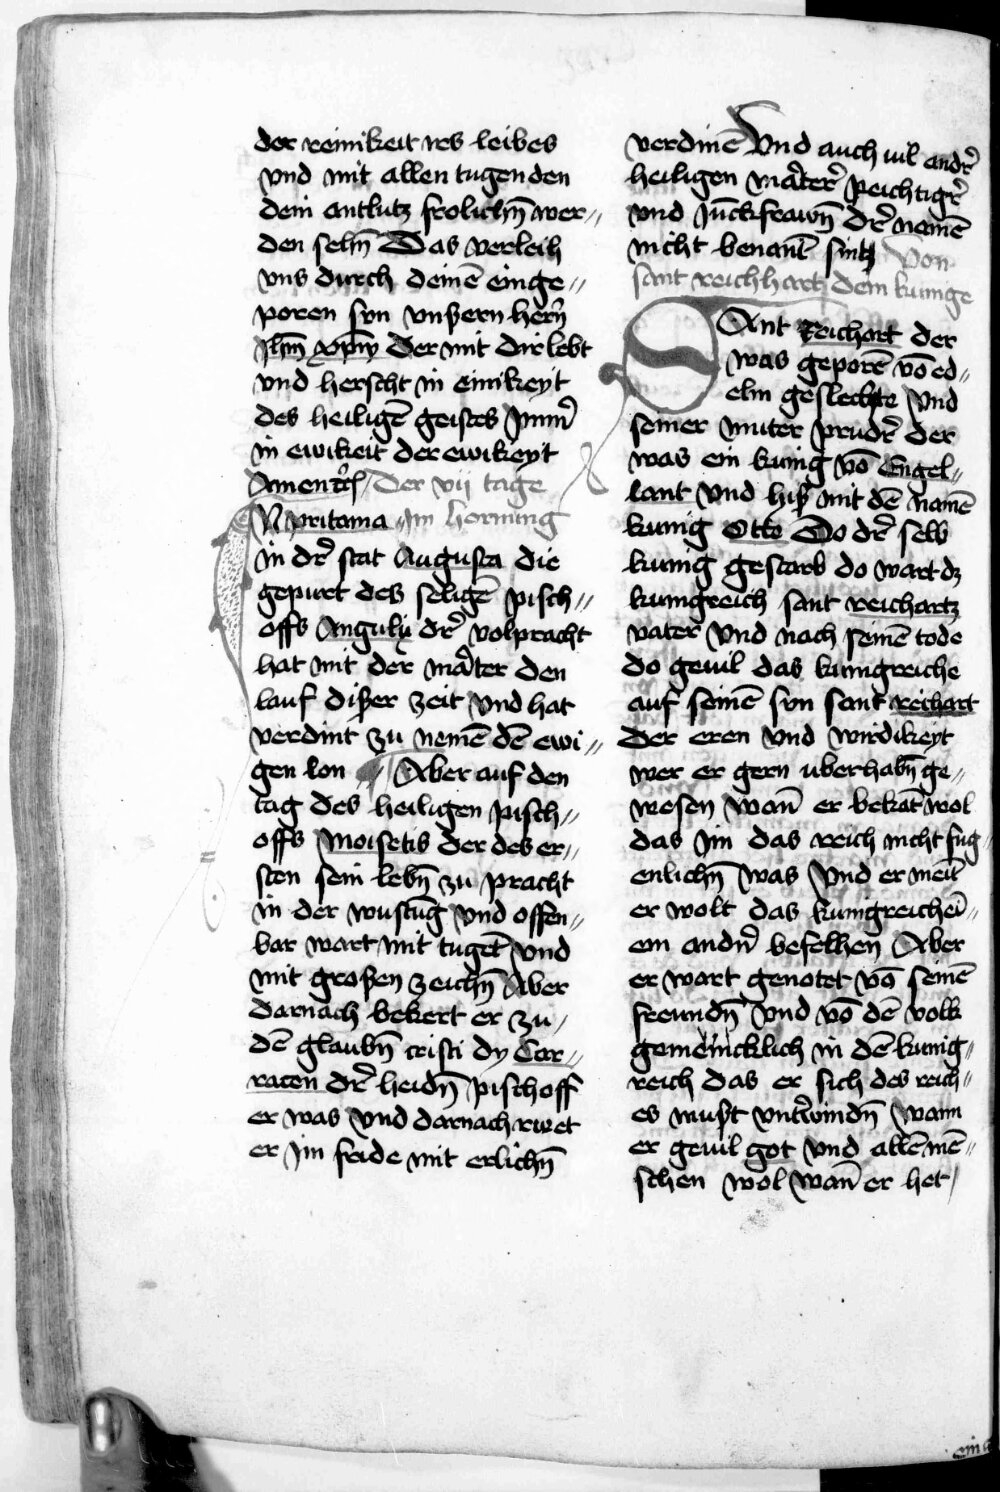 der reinikeit irs leibes
vnd mit allen tugenden
dem antlutz frolichn̄ wer〃
den sehn̄ Das verleih
vns durch deinē einge〃
poren sun vnßern hern̄
Jhm̄ xpm̄ der mit dir lebt
vnd herscht in einikeyt
des heiligē geistes ymm̄
in ewikeit der ewikeyt
Amen Der vij tage
In pritania im horning
in dr̄ stat Augusta die
gepurt des seligē pisch〃
offs Anguly dr̄ volpracht
hat mit der mater den
lauf dißer zeit vnd hat
verdint zu nemē dē ewi〃
gen lon Aber auf den
tag des heiligen pisch〃
offs Moisetis der des er〃
sten sein lebn̄ zu pracht
in der wustūg vnd offen〃
bar wart mit tugēt vnd
mit großen zeichn̄ Aber
darnach bekert er zu
dē glaubn̄ cristi dy Sar〃
racen dr̄ heidn̄ pischoff
er was vnd darnach ruet
er im fride mit erlichn̄
verdinē Vnd auch vil andr̄
heiligen mat̄er̄ peichtigr̄
vnd Jūckfrawn̄ dr̄ namē
nicht benant sintz Von
sant reichhart dem kunige
SAnt Reichart der
was geporē vō ed〃
elm geslechte vnd
seiner muter prudr̄ der
was ein kunig vō Engel〃
lant vnd hiß mit dē namē
kunig Otte Do dr̄ selb
kunig gestarb do wart dz
kunigreich sant reichartz
vater vnd nach seinē tode
do geuil das kunigreiche
auf seinē sun sant reichart
der eren vnd wirdikeyt
wer er gern uberhabn̄ ge〃
wesen wan̄ er bekāt wol
das im das reich nicht fug〃
enlichn̄ was vnd er meīt
er wolt das kunigreich ei〃
em andn̄ befelhen Aber
er wart genotet vō seinē
freundn̄ vnd vō dē volk
gemeincklich in dē kunig〃
reich das er sich des reich〃
es must vnt̄windn̄ wann
er geuil got vnd allē mē〃
schen wol wan̄ er het